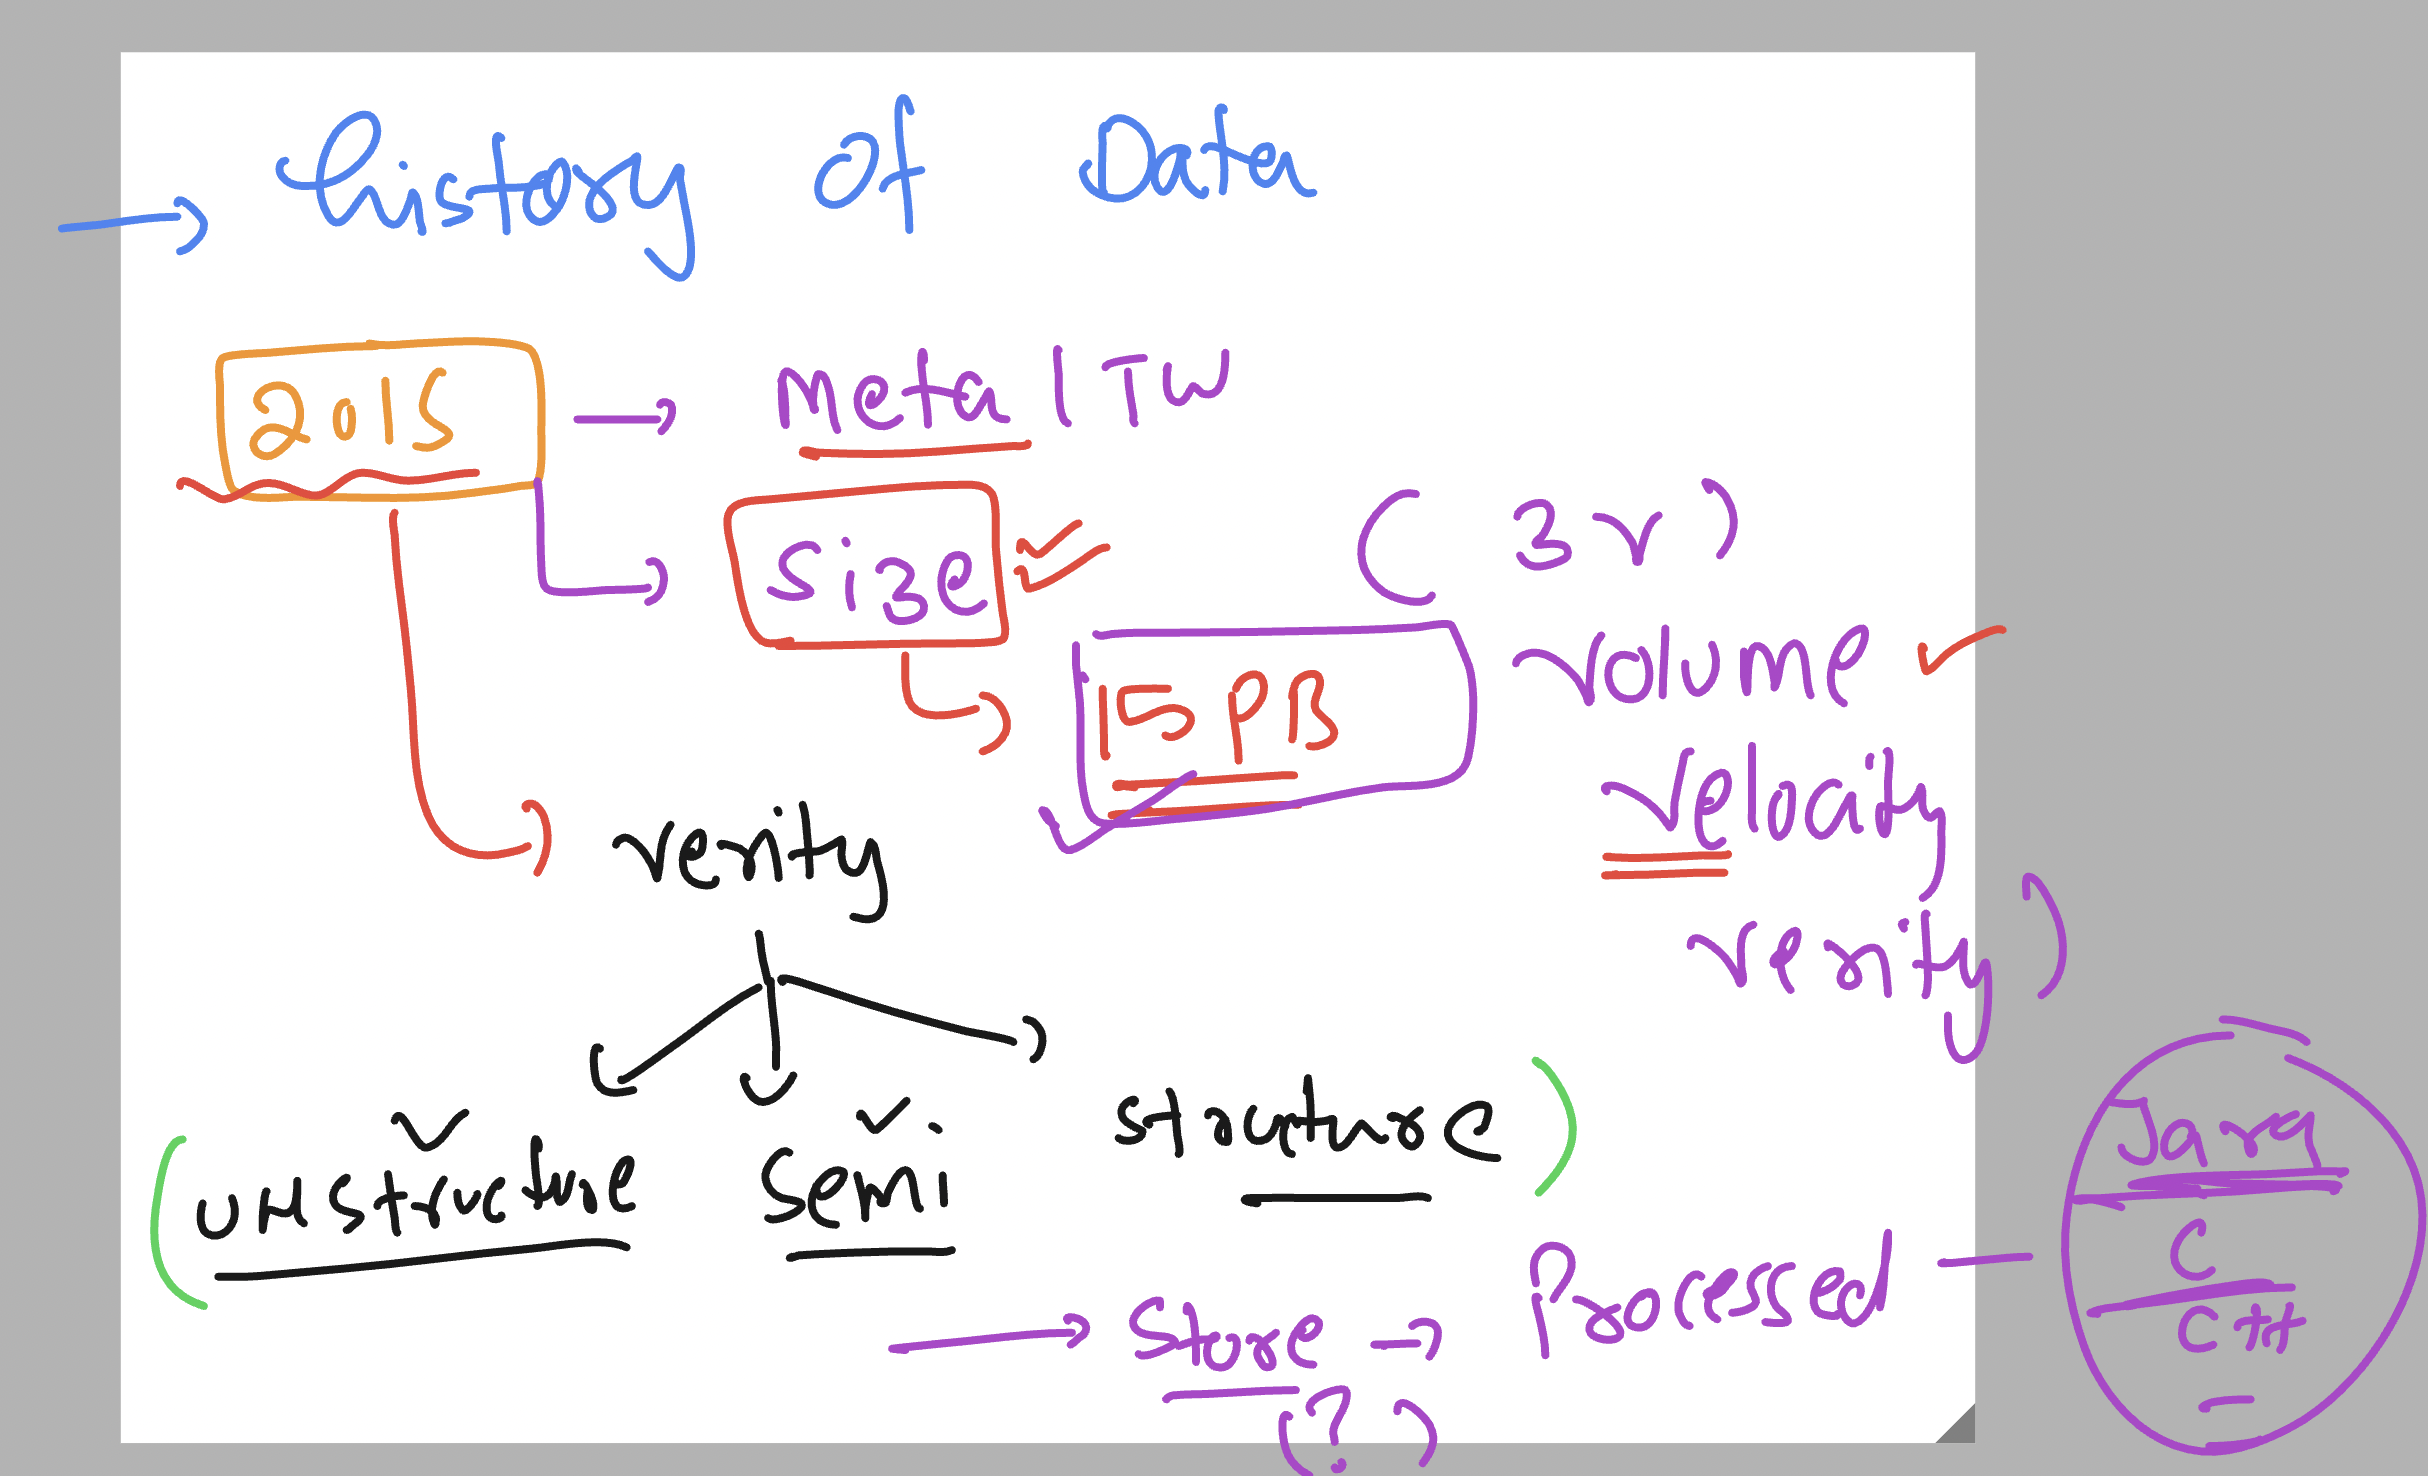 History of Data
2015 → Meta | TW
Size
(3V)
15 PB
Volume
Velocity
Verity
verity)
unstructure
Semi
structure
→ Store → Processed
(?)
Java
C
C++